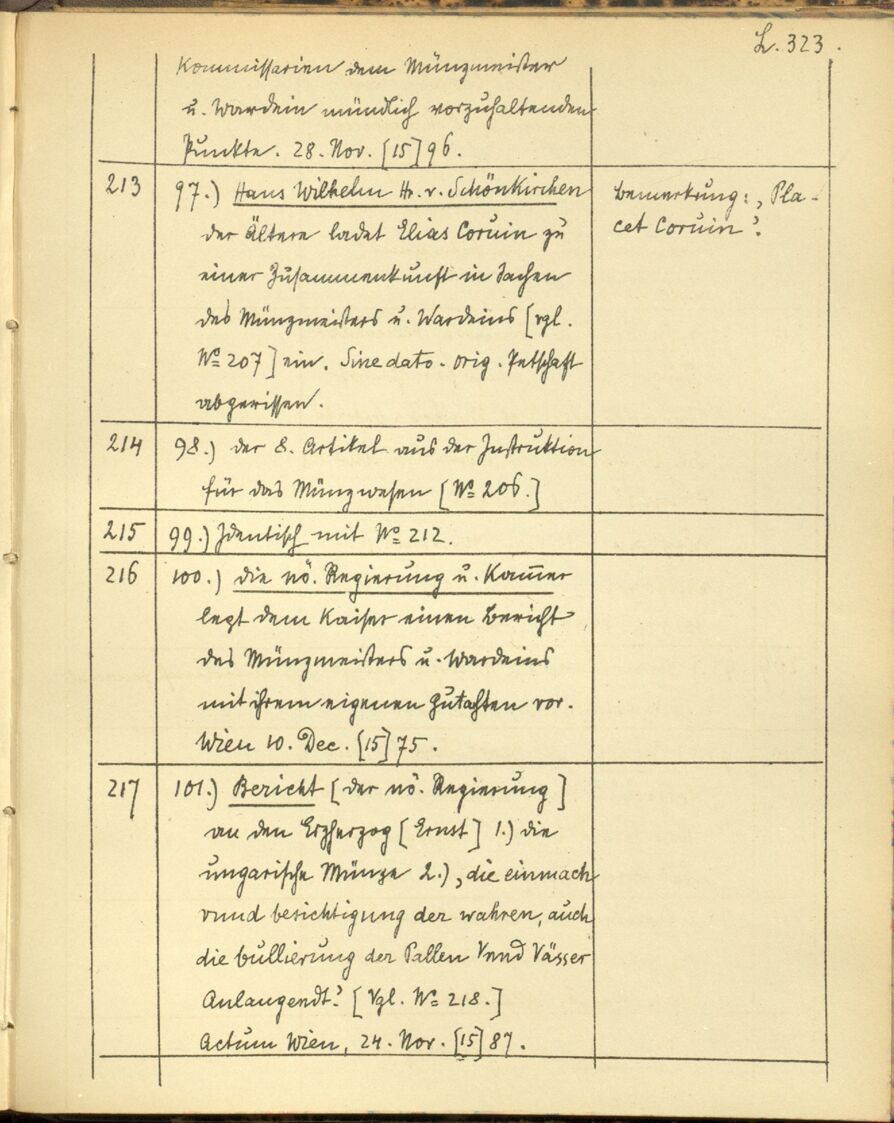 L. 323.
Kommissarien dem Münzmeister
u. Wardein mündlich vorzuhaltenden
Punkte. 28. Nov. [15]96.
213 97.) Hans Wilhelm Hr. v. Schönkirchen
der Ältere ladet Elias Coruin zu
einer Zusammenkunft in Sachen
des Münzmeisters u. Wardeins [vgl.
No 207] ein. Sine dato. orig. Petschaft
abgerissen.
Bemerkung: „Pla-
cet Coruin“.
214 98.) der 8. Artikel aus der Instruktion
für das Münzwesen [No 206.]
215 99.) Identisch mit No 212.
216 100.) die nö. Regierung u. Kam̅er
legt dem Kaiser einen Bericht
des Münzmeisters u. Wardeins
mit ihrem eigenen Gutachten vor.
Wien 10. Dec. [15]75.
217 101.) Bericht [der nö. Regierung]
an den Erzherzog [Ernst] 1.) die
ungarische Münze 2.) „die einmach
vnnd besichtigung der wahren, auch
die bullierung der Pallen Vnnd Vässer
Anlangendt“. [Vgl. No 218.]
Actum Wien, 24. Nov. [15]87.